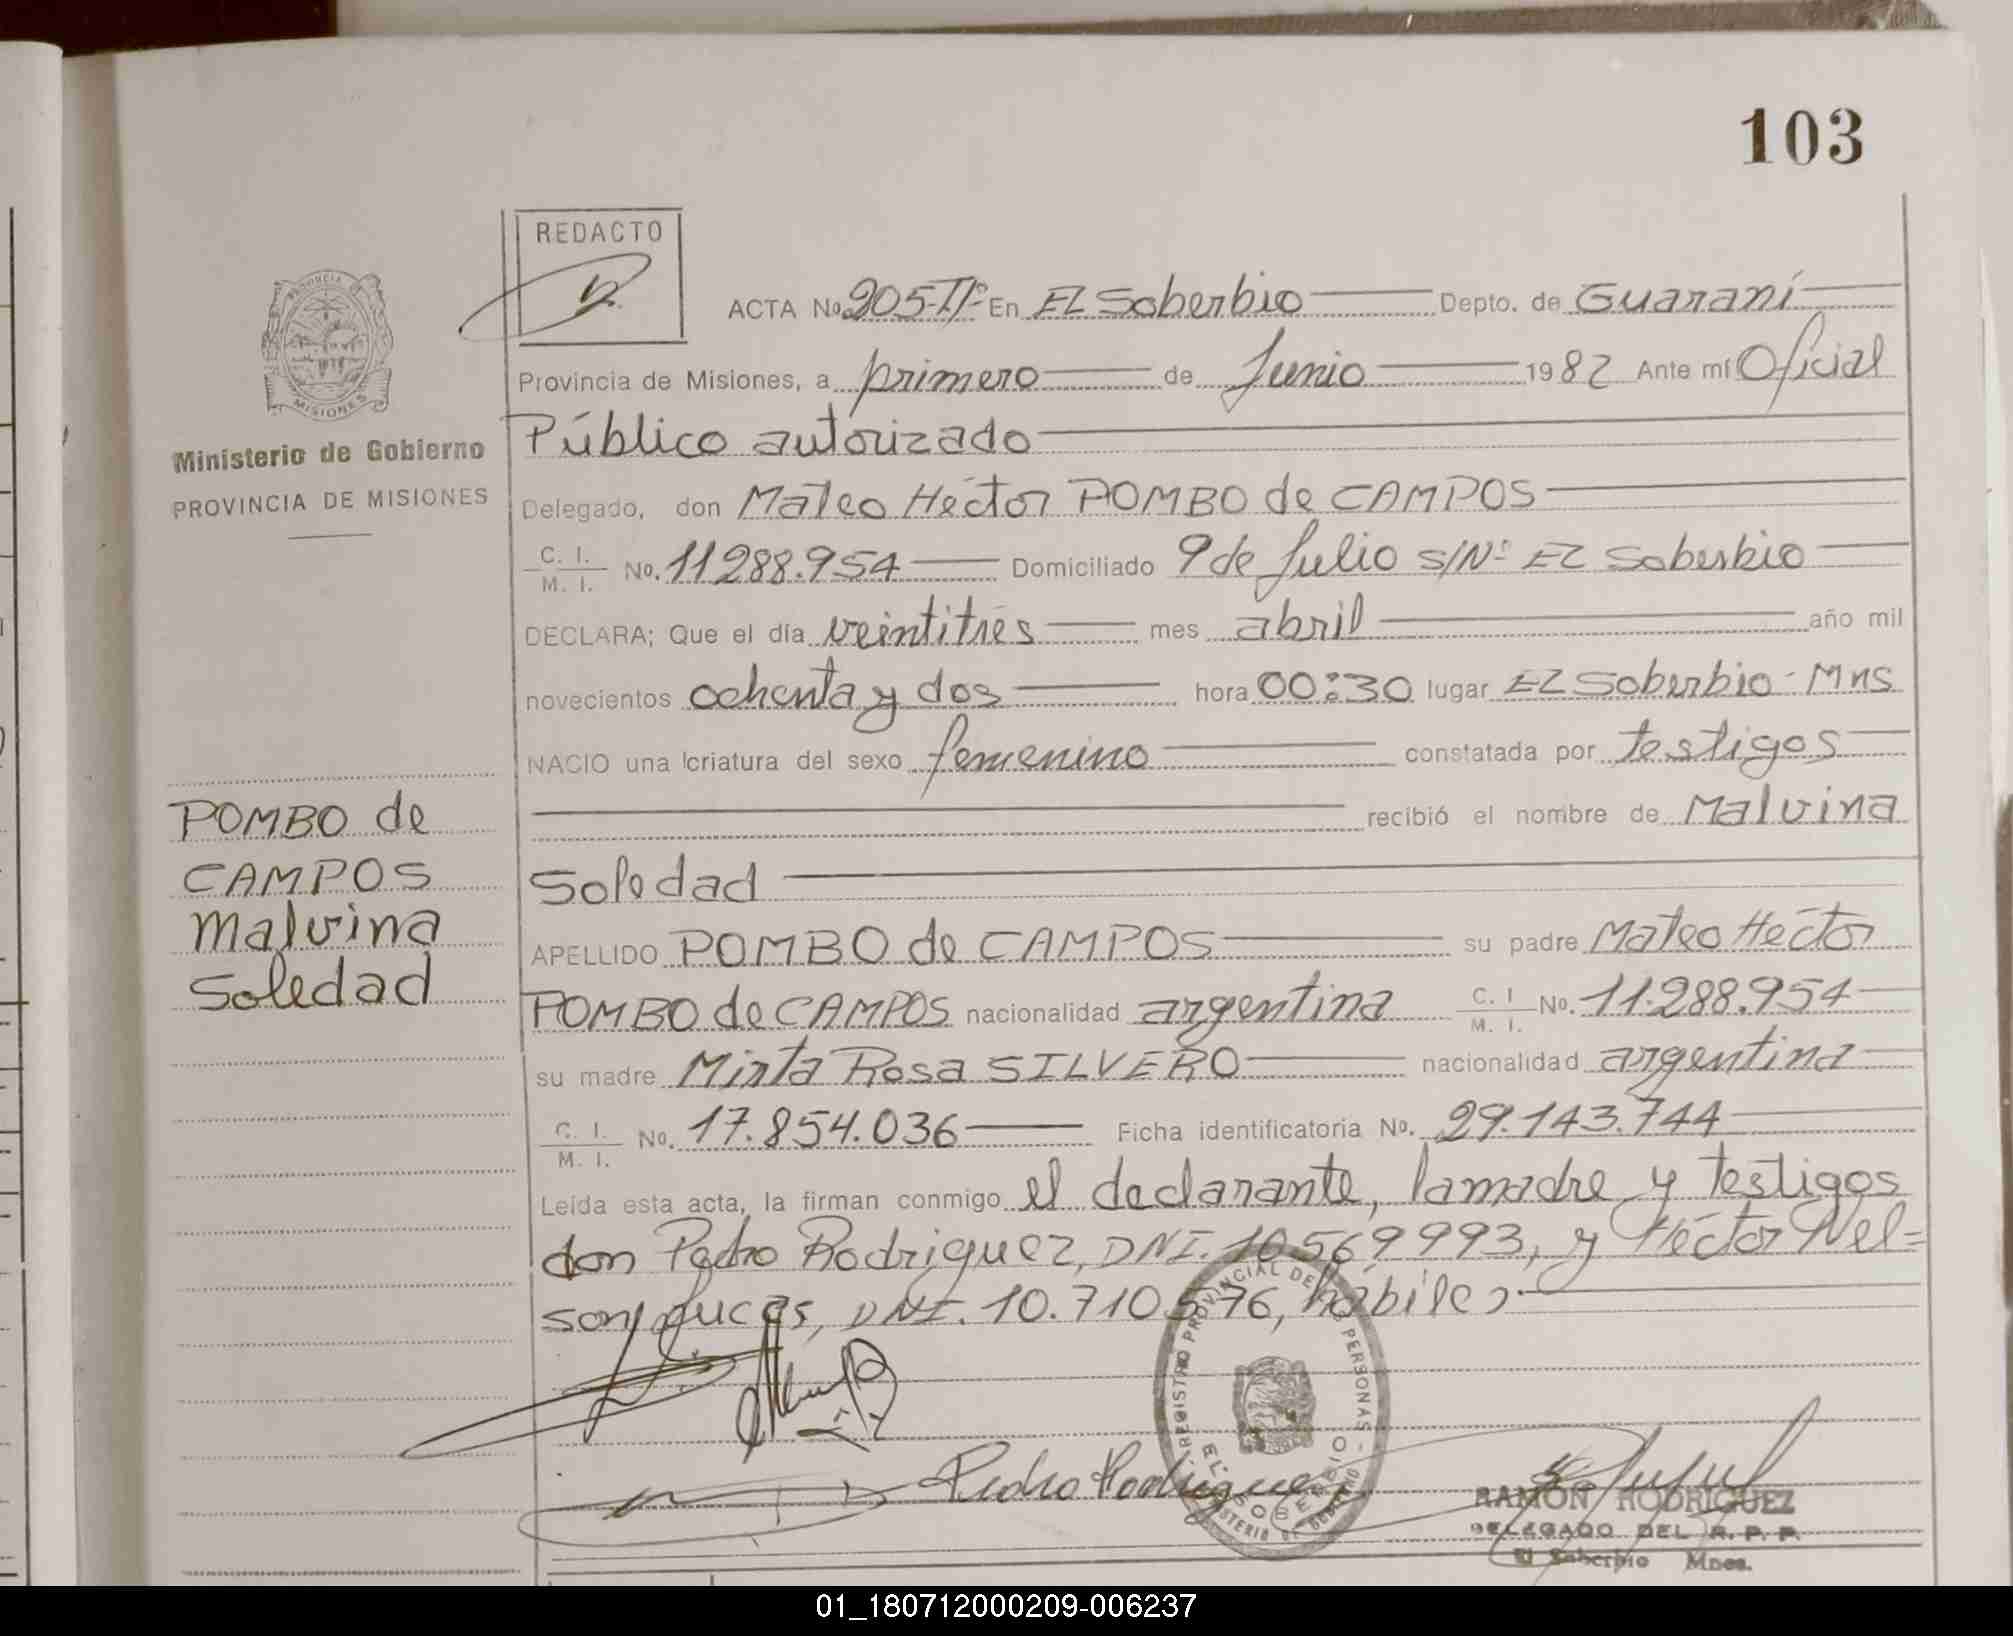 103
REDACTO
ACTA No. 205-IIº En EL Soberbio Depto. de Guaraní
Provincia de Misiones, a primero de Junio 1982 Ante mí Oficial
Público autorizado
Delegado, don Mateo Héctor POMBO de CAMPOS
C. I. / M. I. No. 11288.954 Domiciliado 9 de Julio S/Nº EL Soberbio
DECLARA; Que el día veintitrés mes abril año mil
novecientos ochenta y dos hora 00:30 lugar EL Soberbio - Mns
NACIO una criatura del sexo femenino constatada por testigos
recibió el nombre de Malvina
Soledad
APELLIDO POMBO de CAMPOS su padre Mateo Héctor
POMBO de CAMPOS nacionalidad argentina C. I / M. I. No. 11.288.954
su madre Mirta Rosa SILVERO nacionalidad argentina
C. I. / M. I. No. 17.854.036 Ficha identificatoria No. 29.143.744
Leída esta acta, la firman conmigo el declarante, la madre y testigos
don Pedro Rodriguez, DNI. 10.569993, y Héctor Nel=
son Lucas, DNI. 10.710.576, hábiles.
Pedro Rodriguez
RAMON RODRIGUEZ
DELEGADO DEL R. P. P.
El Soberbio Mnes.
REGISTRO PROVINCIAL DE LAS PERSONAS
EL SOBERBIO
MINISTERIO DE GOBIERNO
PROVINCIA DE
MISIONES
Ministerio de Gobierno
PROVINCIA DE MISIONES
POMBO de
CAMPOS
Malvina
Soledad
01_180712000209-006237